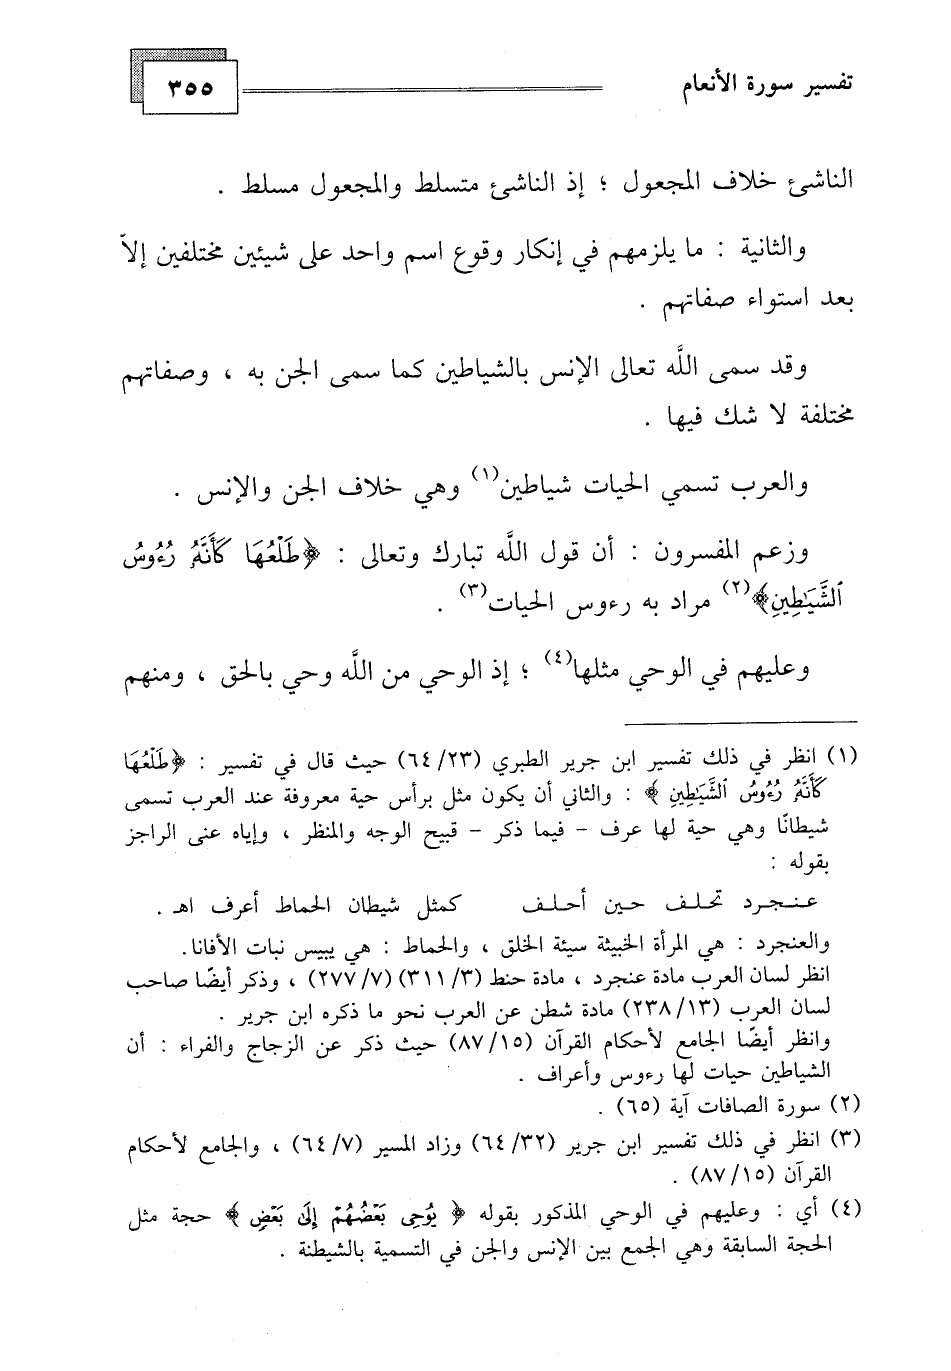 تفسير سورة الأنعام ٣٥٥
الناشئ خلاف المجعول ؛ إذ الناشئ متسلط والمجعول مسلط .
والثانية : ما يلزمهم في إنكار وقوع اسم واحد على شيئين مختلفين إلاّ
بعد استواء صفاتهم .
وقد سمى اللَّه تعالى الإنس بالشياطين كما سمى الجن به ، وصفاتهم
مختلفة لا شك فيها .
والعرب تسمي الحيات شياطين(١) وهي خلاف الجن والإنس .
وزعم المفسرون : أن قول اللَّه تبارك وتعالى : ﴿طَلْعُهَا كَأَنَّهُ رُءُوسُ
ٱلشَّيَٰطِينِ﴾(٢) مراد به رءوس الحيات(٣) .
وعليهم في الوحي مثلها(٤) ؛ إذ الوحي من اللَّه وحي بالحق ، ومنهم
(١) انظر في ذلك تفسير ابن جرير الطبري (٦٤/٢٣) حيث قال في تفسير : ﴿طَلْعُهَا
كَأَنَّهُ رُءُوسُ ٱلشَّيَٰطِينِ ﴾ : والثاني أن يكون مثل برأس حية معروفة عند العرب تسمى
شيطانًا وهي حية لها عرف - فيما ذكر - قبيح الوجه والمنظر ، وإياه عنى الراجز
بقوله :
عنجرد تحلف حين أحلف كمثل شيطان الحماط أعرف اهـ .
والعنجرد : هي المرأة الخبيثة سيئة الخلق ، والحماط : هي يبيس نبات الأفانا.
انظر لسان العرب مادة عنجرد ، مادة حنط (٣١١/٣) (٢٧٧/٧) ، وذكر أيضًا صاحب
لسان العرب (٢٣٨/١٣) مادة شطن عن العرب نحو ما ذكره ابن جرير .
وانظر أيضًا الجامع لأحكام القرآن (٨٧/١٥) حيث ذكر عن الزجاج والفراء : أن
الشياطين حيات لها رءوس وأعراف .
(٢) سورة الصافات آية (٦٥) .
(٣) انظر في ذلك تفسير ابن جرير (٦٤/٣٢) وزاد المسير (٦٤/٧) ، والجامع لأحكام
القرآن (٨٧/١٥) .
(٤) أي : وعليهم في الوحي المذكور بقوله ﴿ يُوحِى بَعْضُهُمْ إِلَىٰ بَعْضٍ ﴾ حجة مثل
الحجة السابقة وهي الجمع بين الإنس والجن في التسمية بالشيطنة .